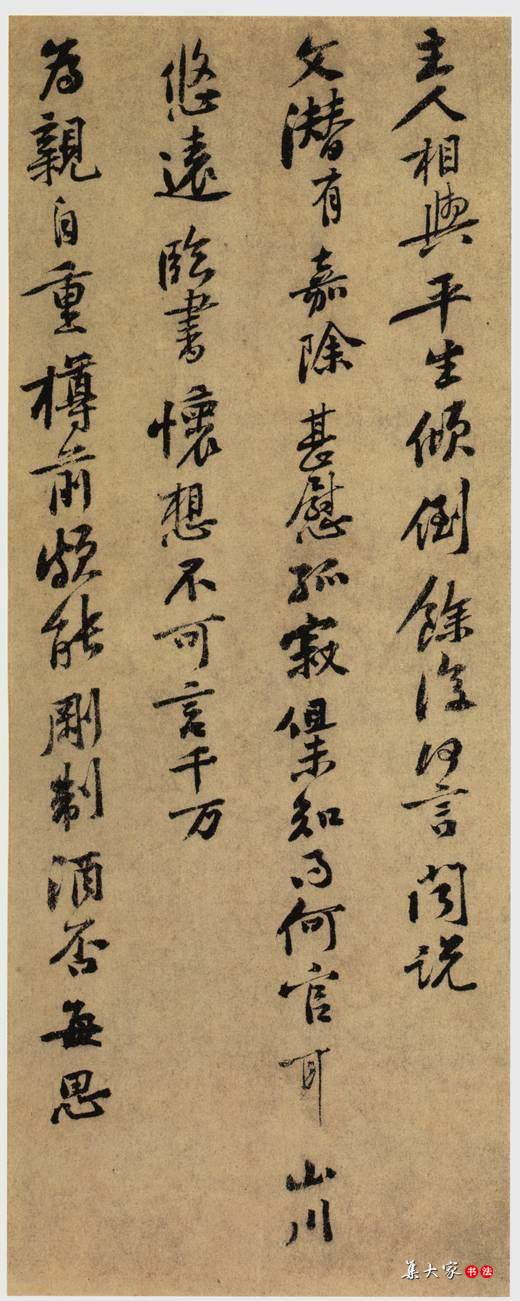 主人相與平生傾倒餘復何言聞説
文潛有嘉除甚慰孤寂但未知得何官耳山川
悠遠臨書懷想不可言千万
為親自重樽前頗能剛制酒否每思
集大家书法